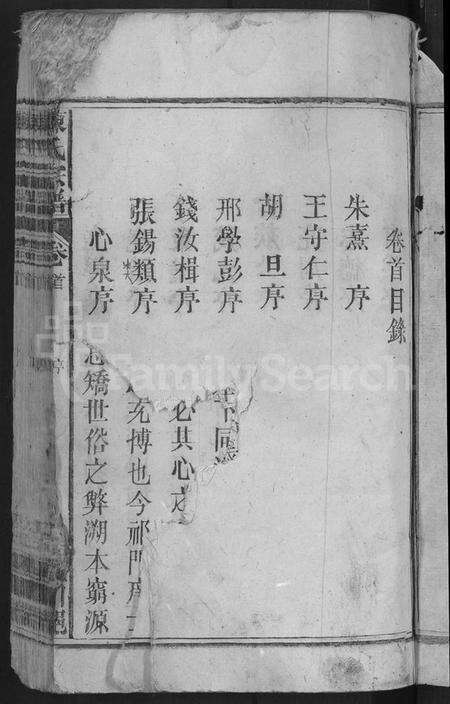 卷首目錄
朱熹 序
王守仁序
胡旦序
邢學彭序
錢汝楫序
必其心
張錫類序
充博也今祁門
心泉序
矯世俗之弊溯本窮源
卷首
序
FamilySearch